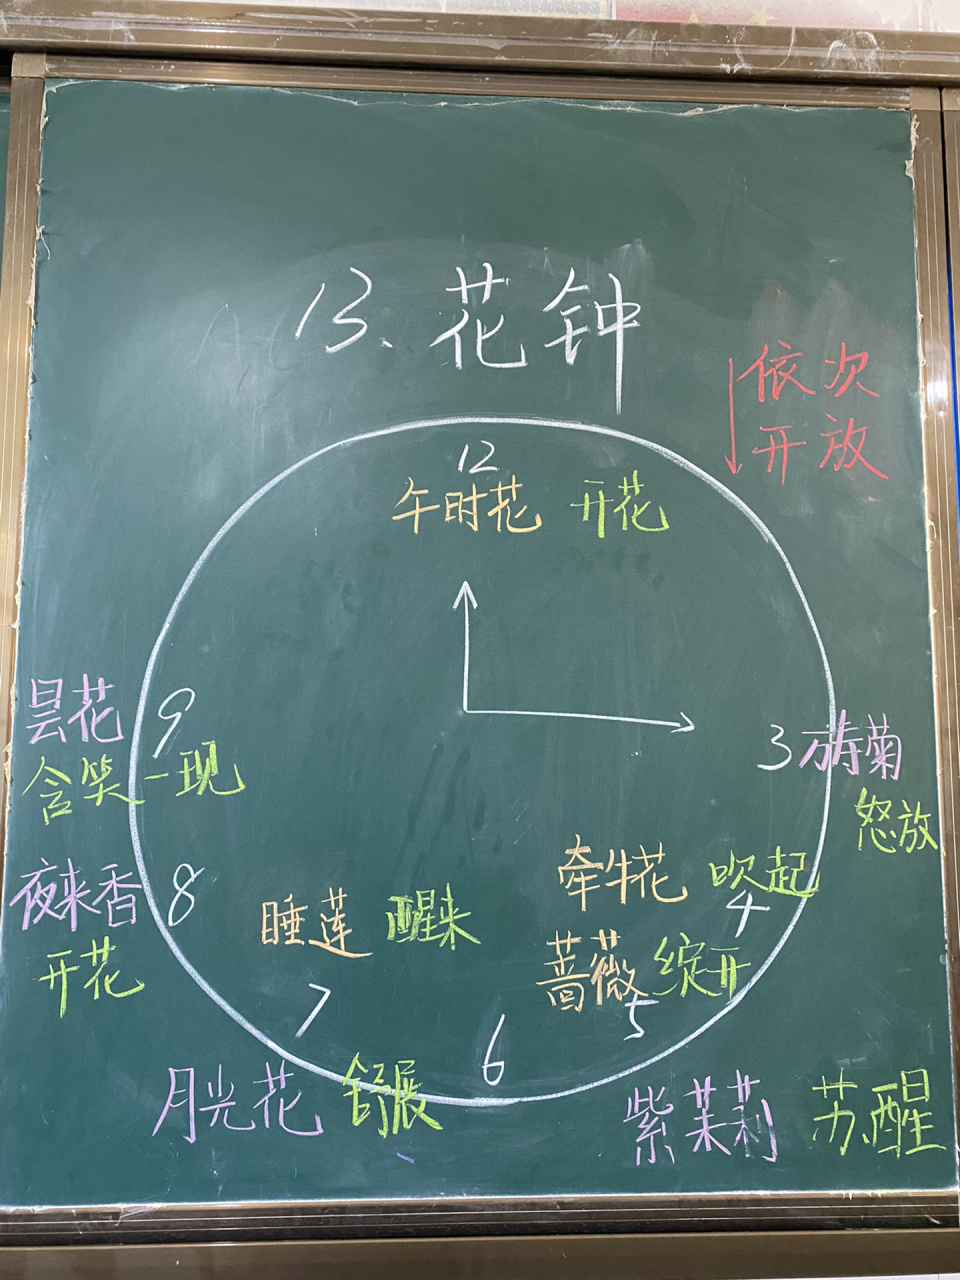 13、花钟
依次
开放
12
午时花 开花
昙花 9
含笑一现
3 万寿菊
怒放
牵牛花 吹起
4
夜来香 8
开花
睡莲 醒来
蔷薇 绽开
5
7
6
月光花 舒展
紫茉莉 苏醒